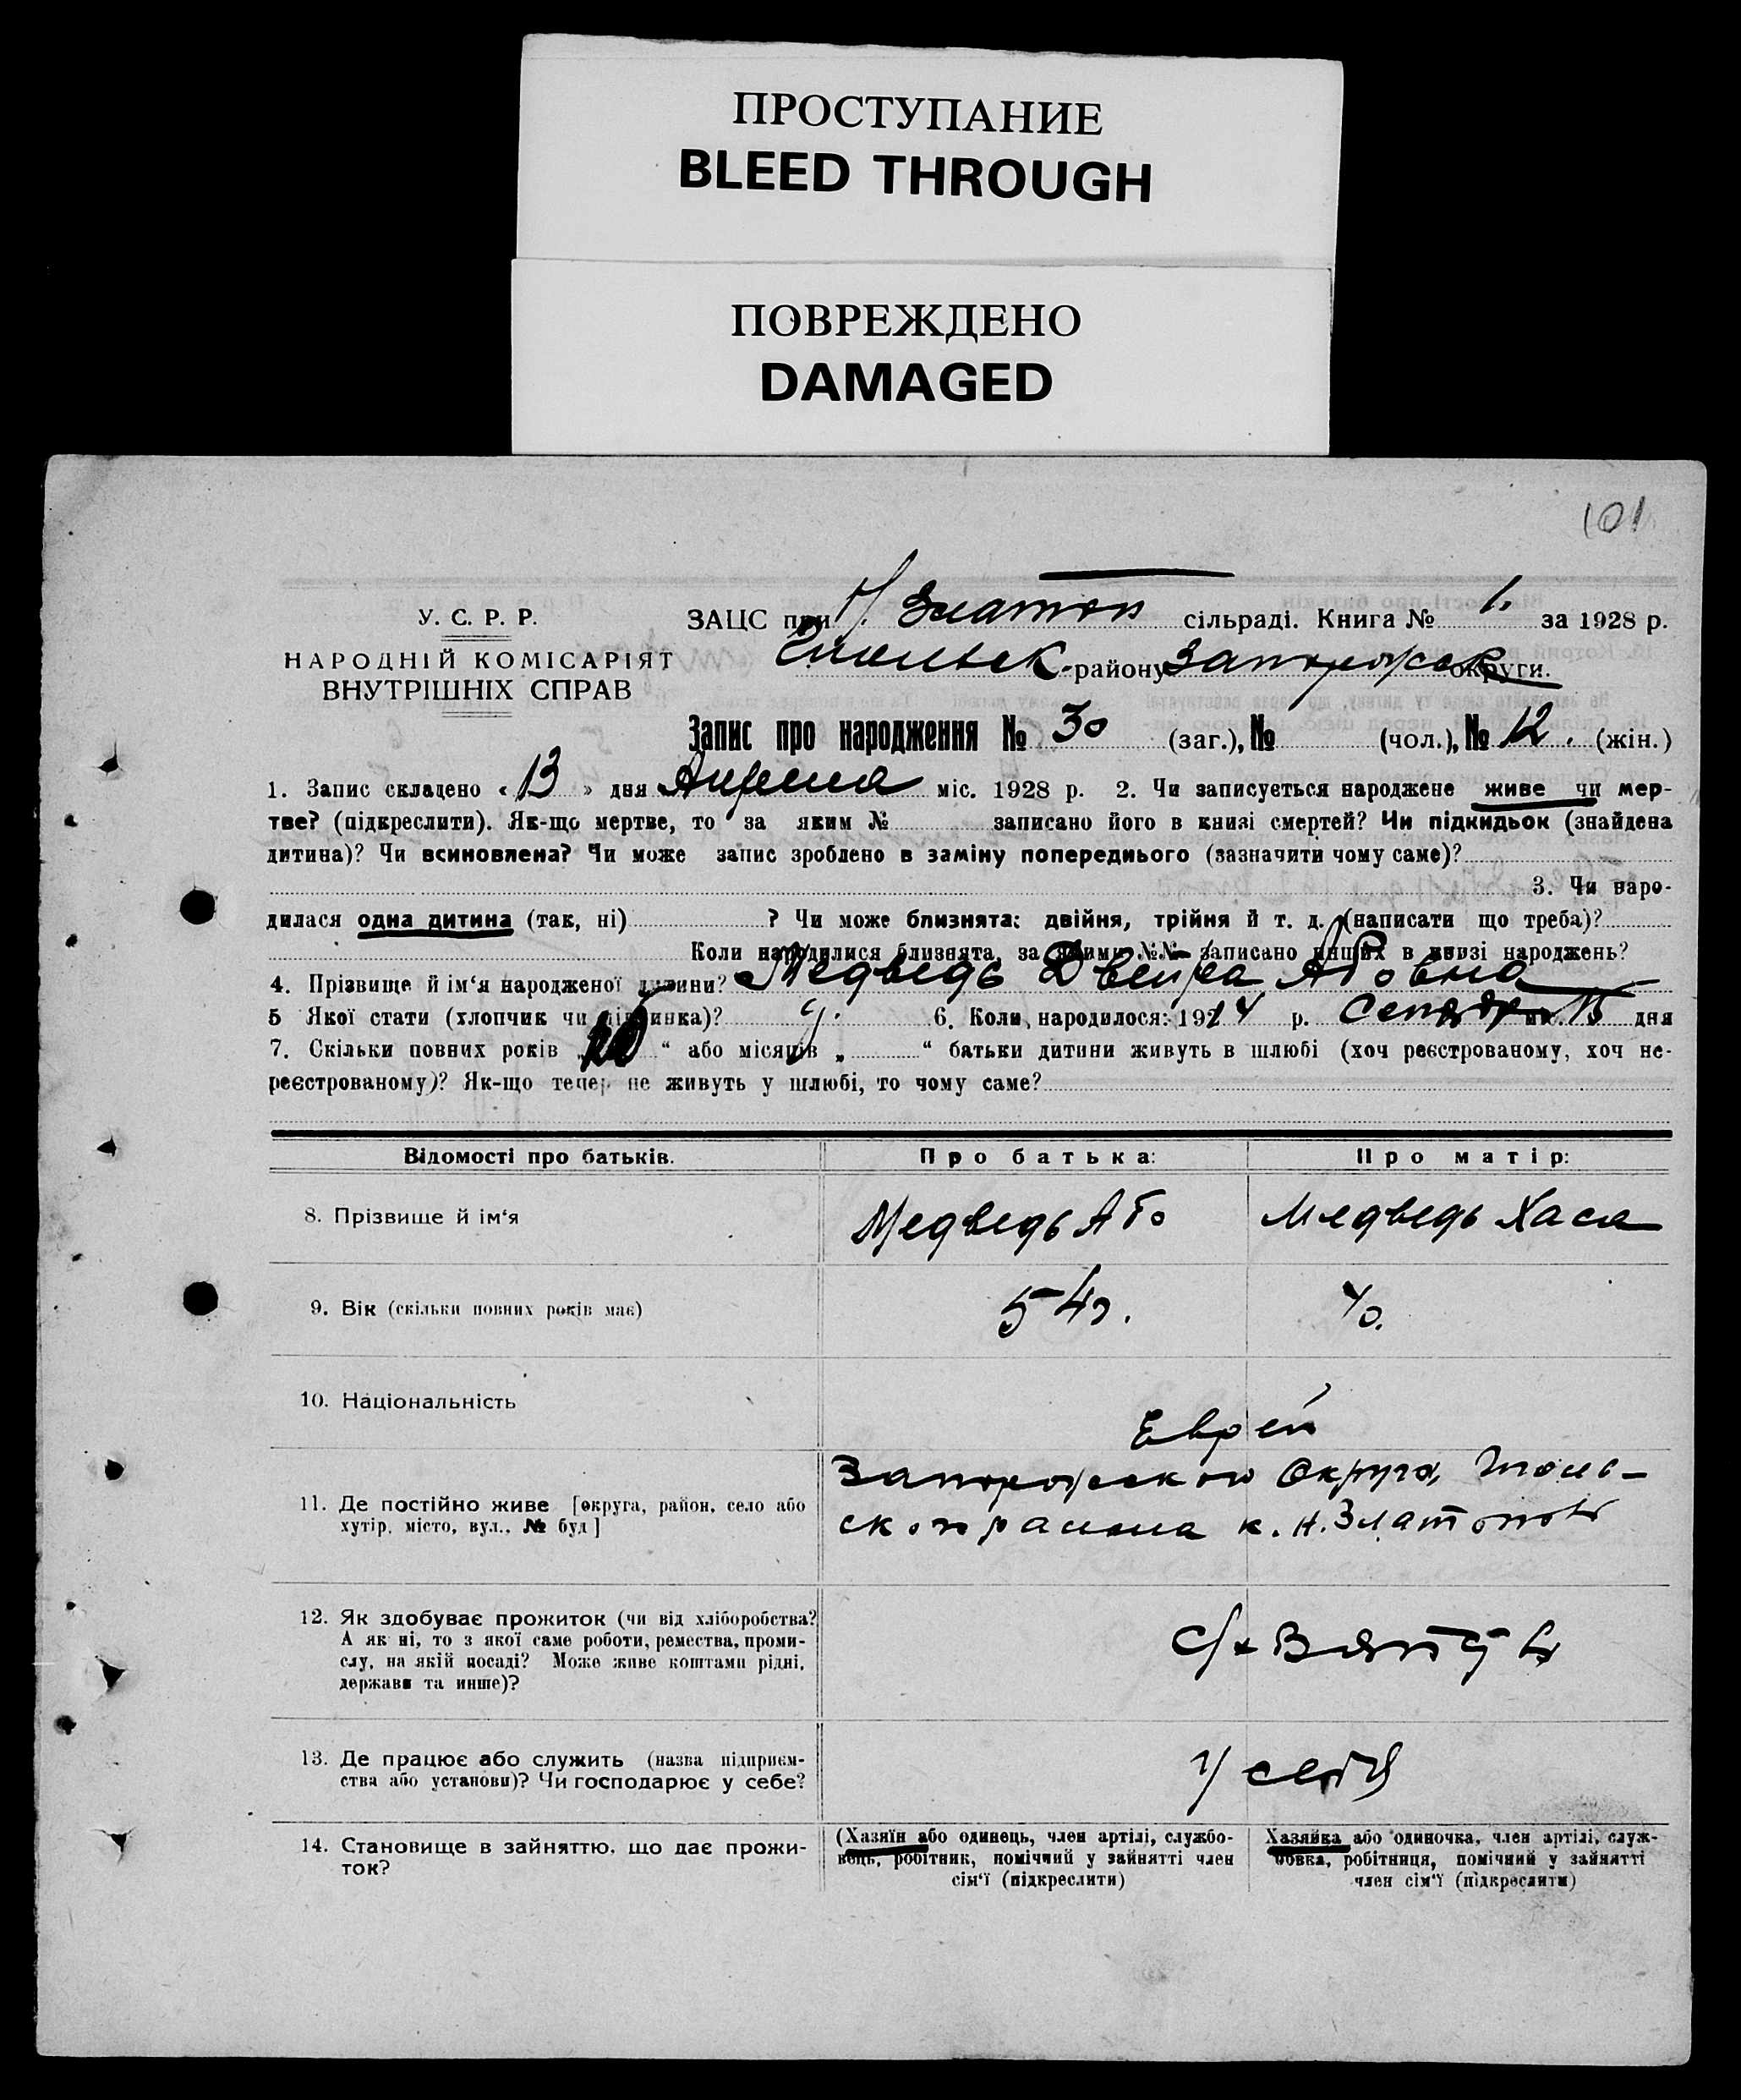 ПРОСТУПАНИЕ
BLEED THROUGH
ПОВРЕЖДЕНО
DAMAGED
101
У. С. Р. Р.
НАРОДНІЙ КОМІСАРІЯТ
ВНУТРІШНІХ СПРАВ
ЗАЦС при Н/Златоп сільраді. Книга № 1. за 1928 р.
району Запорожск округи.
Запис про народження № 30 (заг.), № (чол.), № 12. (жін.)
1. Запис складено « 13 » дня Апреля міс. 1928 р. 2. Чи записується народжене живе чи мер-
тве? (підкреслити). Як-що мертве, то за яким № записано його в книзі смертей? Чи підкидьок (знайдена
дитина)? Чи всиновлена? Чи може запис зроблено в заміну попереднього (зазначити чому саме)?
3. Чи наро-
дилася одна дитина (так, ні) ? Чи може близнята: двійня, трійня й т. д. (написати що треба)?
Коли народилися близнята, за якими №№ записано инших в книзі народжень?
4. Прізвище й ім‘я народженої дитини? Медведь Двейра Абовна
5 Якої стати (хлопчик чи дівчинка)? 6. Коли народилося: 1914 р. Сентября міс. 15 дня
7. Скільки повних років „ “ або місяців „ “ батьки дитини живуть в шлюбі (хоч реєстрованому, хоч не-
реєстрованому)? Як-що тепер не живуть у шлюбі, то чому саме?
Відомості про батьків. Про батька: Про матір:
8. Прізвище й ім‘я Медведь Або Медведь Хася
9. Вік (скільки повних років має) 54 г. 40.
10. Національність Еврей
11. Де постійно живе [округа, район, село або
хутір, місто, вул., № буд] Запорожской Округа,
ск. района к. Н. Златополь
12. Як здобуває прожиток (чи від хліборобства?
А як ні, то з якої саме роботи, ремества, проми-
слу, на якій посаді? Може живе коштами рідні,
держави та инше)?
13. Де працює або служить (назва підприєм-
ства або установи)? Чи господарює у себе? у себя
14. Становище в зайняттю, що дає прожи-
ток?
(Хазяїн або одинець, член артілі, службо-
вець, робітник, помічний у зайнятті член
сім‘ї (підкреслити)
Хазяйка або одиночка, член артілі, служ-
бовка, робітниця, помічний у зайнятті
член сім‘ї (підкреслити)